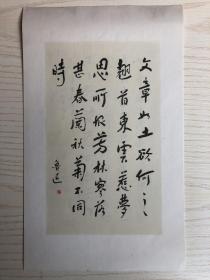 文章如土欲何之
翘首東雲惹夢
思所恨芳林寥落
甚春蘭秋菊不同
時
魯迅